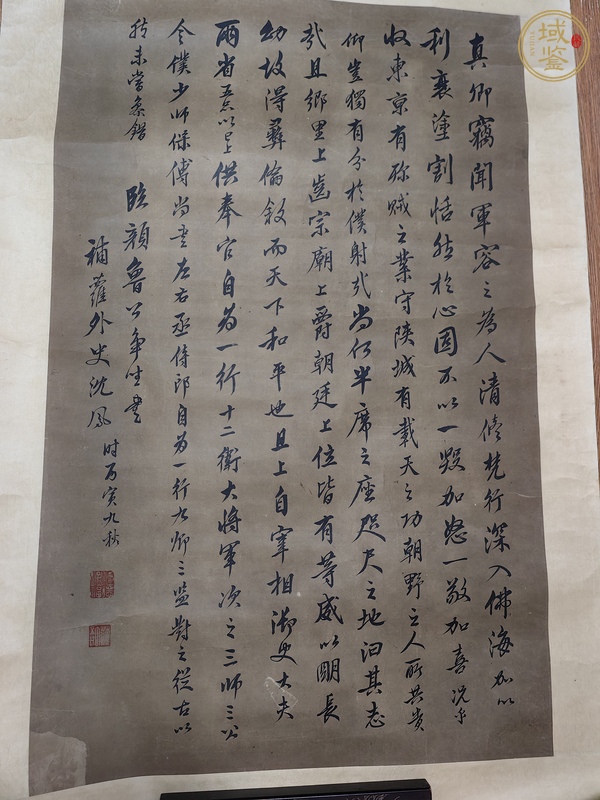 真卿竊聞軍容之為人清修梵行深入佛海加以
利衰塗割恬然於心固不以一毀加怒一敬加喜況乎
收東京有殄賊之業守陝城有戴天之功朝野之人所共貴
仰豈獨有分於僕射哉尚何半席之座咫尺之地汩其志
哉且鄉里上齒宗廟上爵朝廷上位皆有等威以明長
幼故得彝倫敘而天下和平也且上自宰相御史大夫
兩省五品以上供奉官自為一行十二衛大將軍次之三師三公
令僕少師保傅尚書左右丞侍郎自為一行九卿三監對之從古以
然未嘗參錯
臨顏魯公爭坐書
補蘿外史沈鳳時丙寅九秋
域鑒